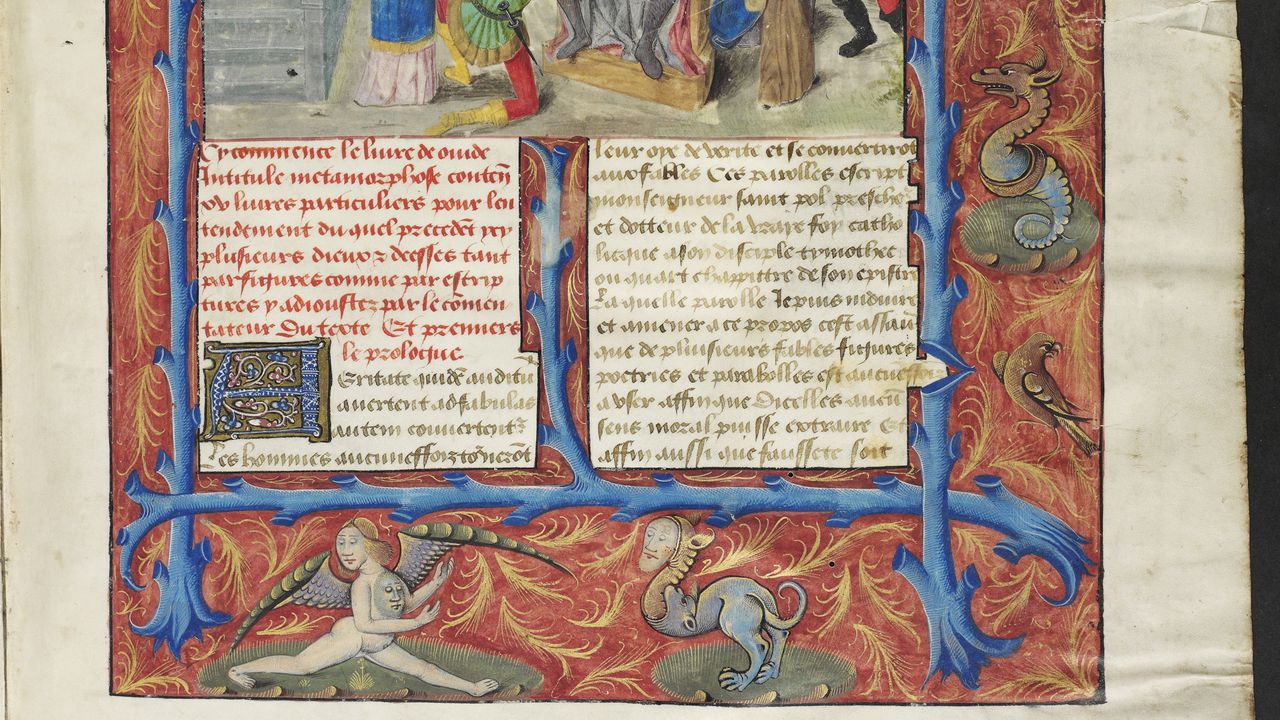 Cy commence le livre de ovide
Intitule metamorphose conten̄
xv livres particuliers pour len
tendement du quel precedēt xxj
plusieurs dieux ⁊ deesses tant
par figures comme par escrip
tures y adioustez par le cōmen
tateur Du texte Et premiers
le prologue
Veritate quidē auditū
avertent ad fabulas
autem convertent᷑
Les hommes aucuneffoiz tōnerōt
leur oye de verite et se convertirōt
aux fables Ces parolles escript
monseigneur saint pol prescheᷣ
et dotteur de la vraye foy catho
licque a son disciple tymothee
ou quart chappittre de son epistre
La quelle parolle Je puis induire
et amener a ce propos cest assau᷑
que de pluiseurs fables figures
poetries et parabolles est aucuneffoiz
a user affin que dicelles aucū
sens moral puisse extraire Et
affin aussi que faussete soit